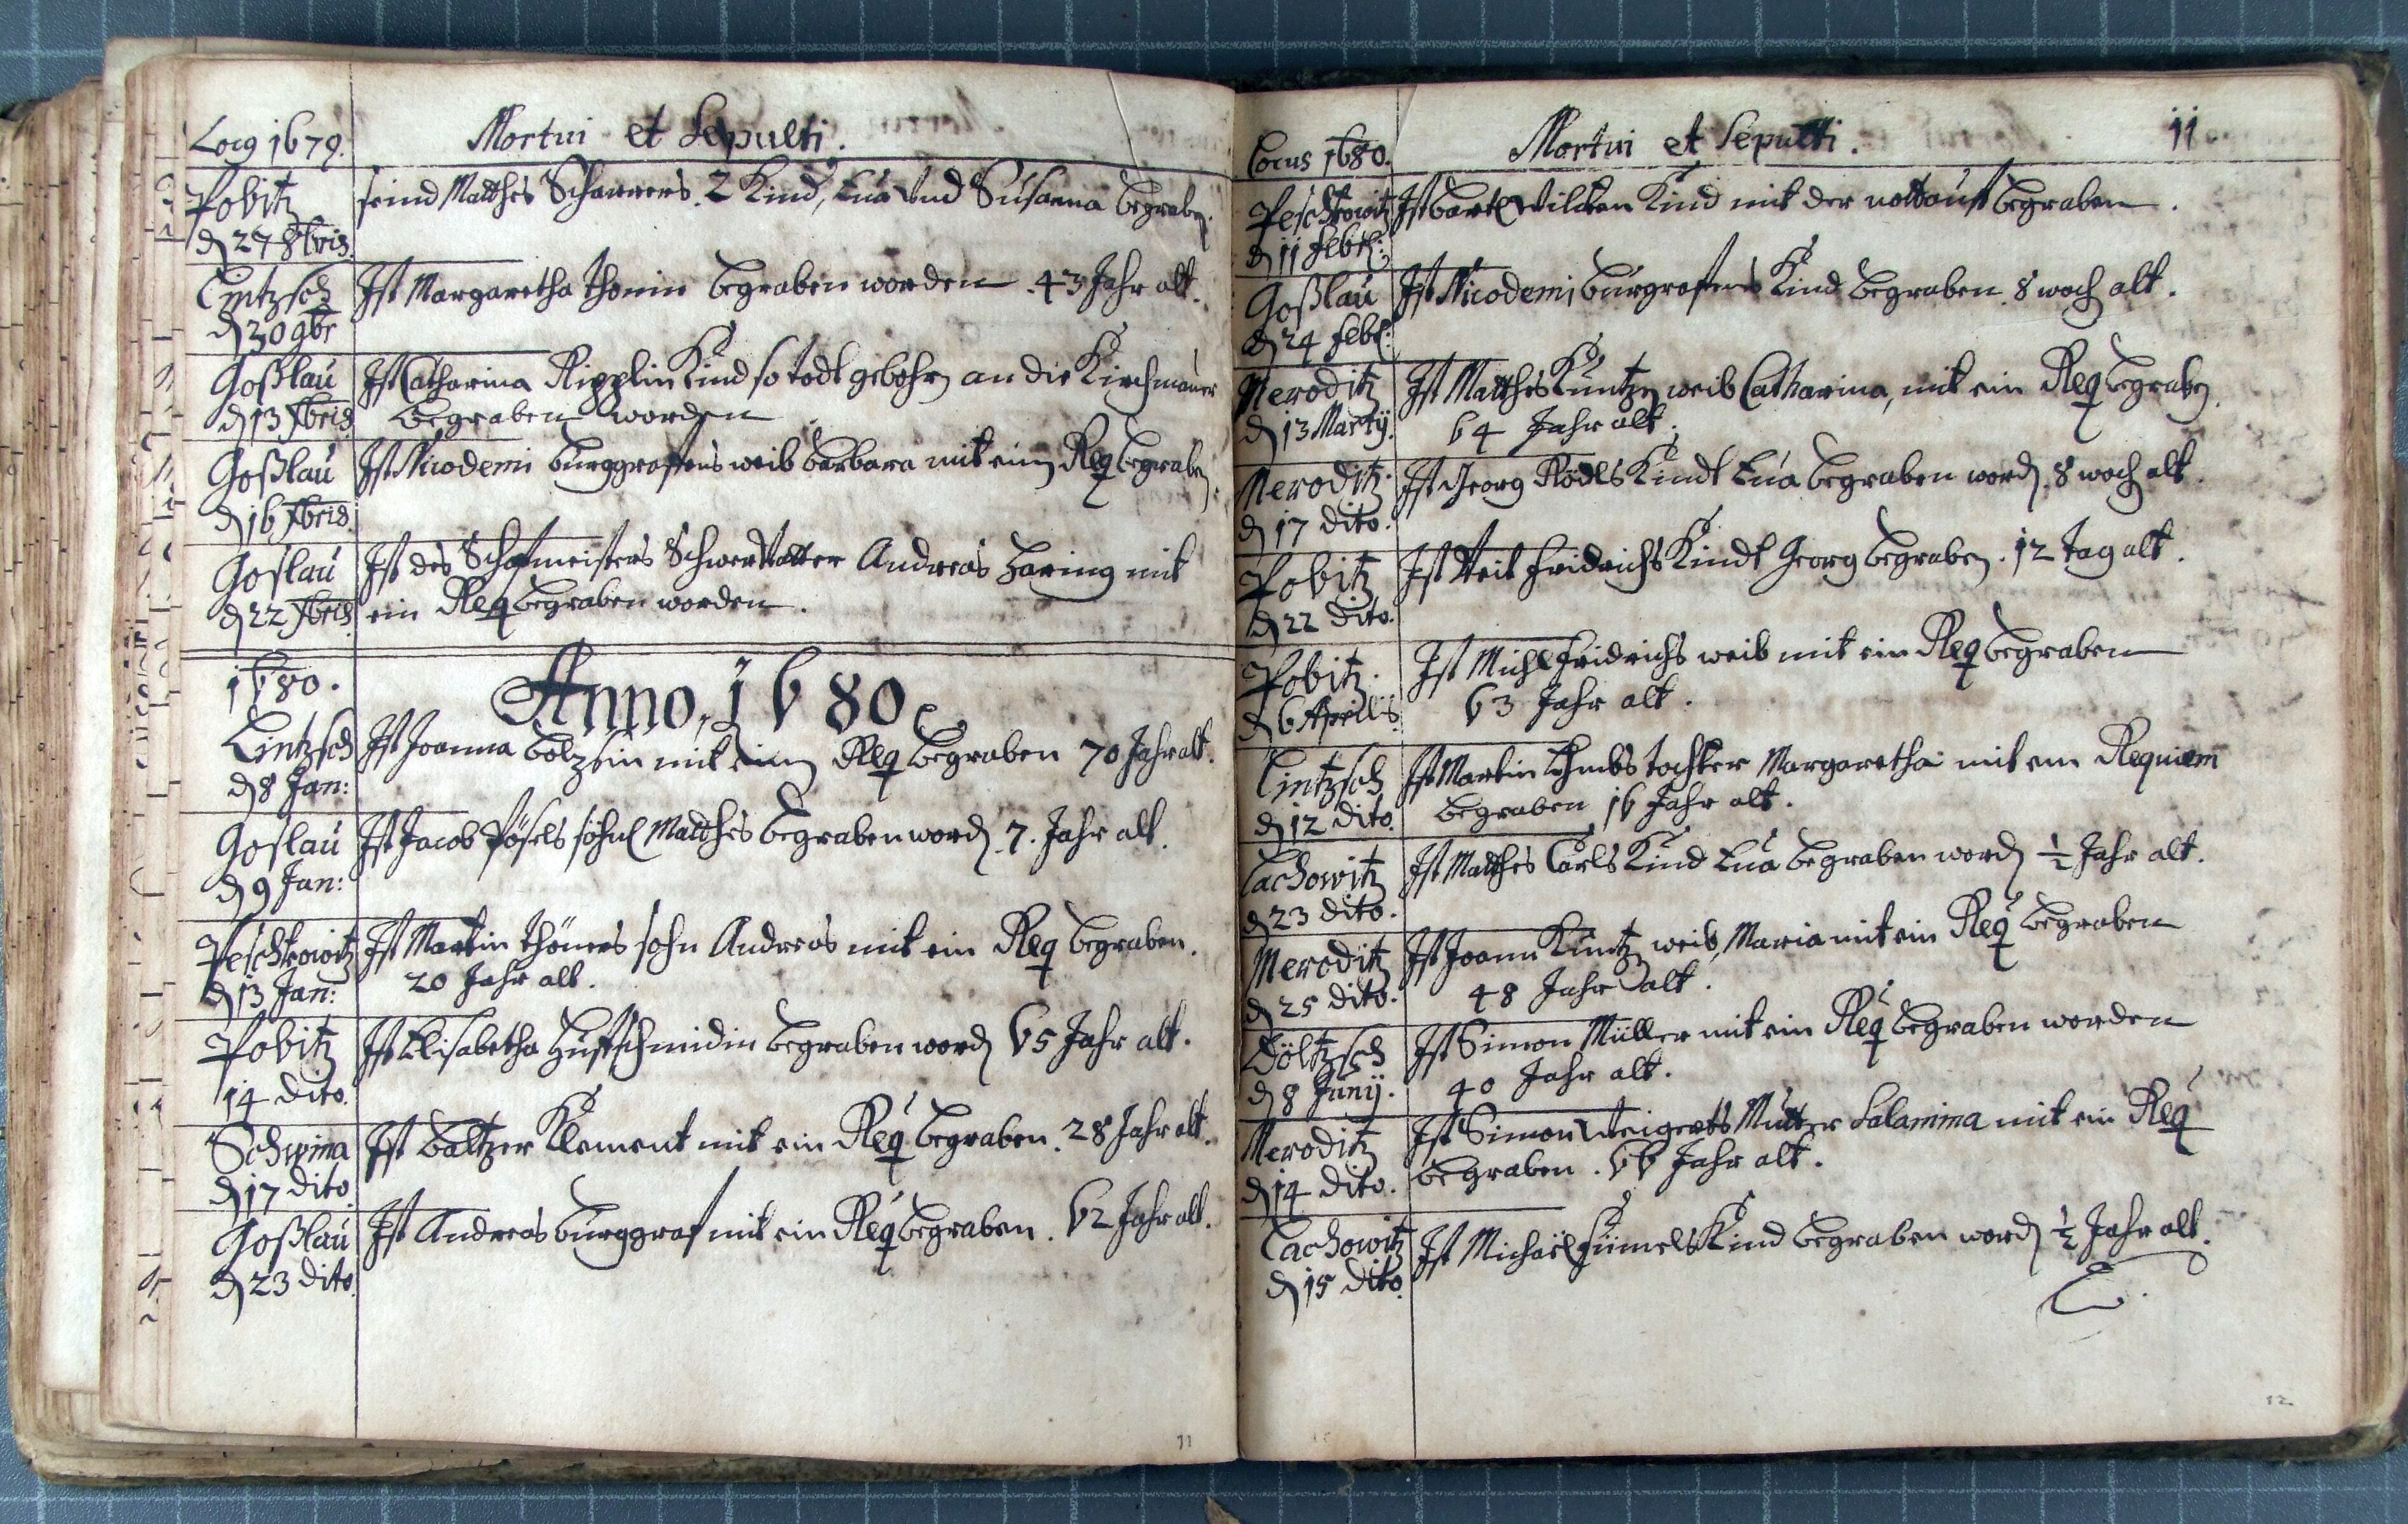 Locg 1679.
Mortui et Sepulti.
Pobitz
d 27 8bris.
seind Matthes Schawers 2 Kind, Eua Vnd Susanna begraben.
Lintzsch
d 30 9br
Ist Margaretha Thomin begraben worden 43 Jahr alt.
Goßlau
d 13 Xbris
Ist Catharina Ripplin Kind so todt gebohrn an die Kirchmauer
begraben worden
Goßlau
d 16 Xbris.
Ist Nicodemi burggraffens weib barbara mit einem Req begraben.
Goslau
d 22 Xbris
Ist des Schafmeisters Schwer Vatter Andreas Haring mit
ein Req begraben worden.
1680.
Anno, 1680
Lintzsch
d 8 Jan:
Ist Joanna bolzsin mit einem Req begraben 70 Jahr alt.
Goslau
d 9 Jan:
Ist Jacob Pösels söhnl Matthes begraben word 7. Jahr alt.
Peschkowitz
d 13 Jan:
Ist Martin Thömers sohn Andreas mit ein Req begraben.
20 Jahr alt.
Pobitz
14 dito.
Ist Elisabetha Huffschmidin begraben word 65 Jahr alt.
Schwina
d 17 dito
Ist baltzer Klement mit ein Req begraben. 28 Jahr alt.
Goßlau
d 23 dito
Ist Andreas burggraf mit ein Req begraben. 62 Jahr alt.
11
Locus 1680.
Mortui et Sepulti.
11
Peschkowitz
d 11 febr:
Ist bartl Wilden Kind mit der nottauff begraben.
Goßlau
d 24 febr:
Ist Nicodemi burgraffens Kind begraben. 8 woch alt.
Meroditz
d 13 Martij.
Ist Matthes Kuntzen weib Catharina, mit ein Req begraben
64 Jahr alt.
Meroditz
d 17 dito.
Ist Georg Rödls Kindt Eua begraben word. 8 woch alt.
Pobitz
d 22 dito.
Ist Veit Fridrichs Kindt Georg begraben. 12 tag alt.
Pobitz.
d 6 Aprilis
Ist Michl Fridrichs weib mit ein Req begraben
63 Jahr alt.
Lintzsch
d 12 dito.
Ist Martin tochter Margaretha mit ein Requiem
begraben 16 Jahr alt.
Lachowitz
d 23 dito.
Ist Matthes Carls Kind Eua begraben word ½ Jahr alt.
Meroditz
d 25 dito.
Ist Joann Kuntzen weib, Maria mit ein Req begraben
48 Jahr alt.
Döltzsch
d 8 Junij.
Ist Simon Müller mit ein Req begraben worden
40 Jahr alt.
Meroditz
d 14 dito.
Ist Simon Weigerts Mutter Salamina mit ein Req
begraben. 66 Jahr alt.
Lachowitz
d 15 dito
Ist Michaël Hümels Kind begraben word ½ Jahr alt.
12